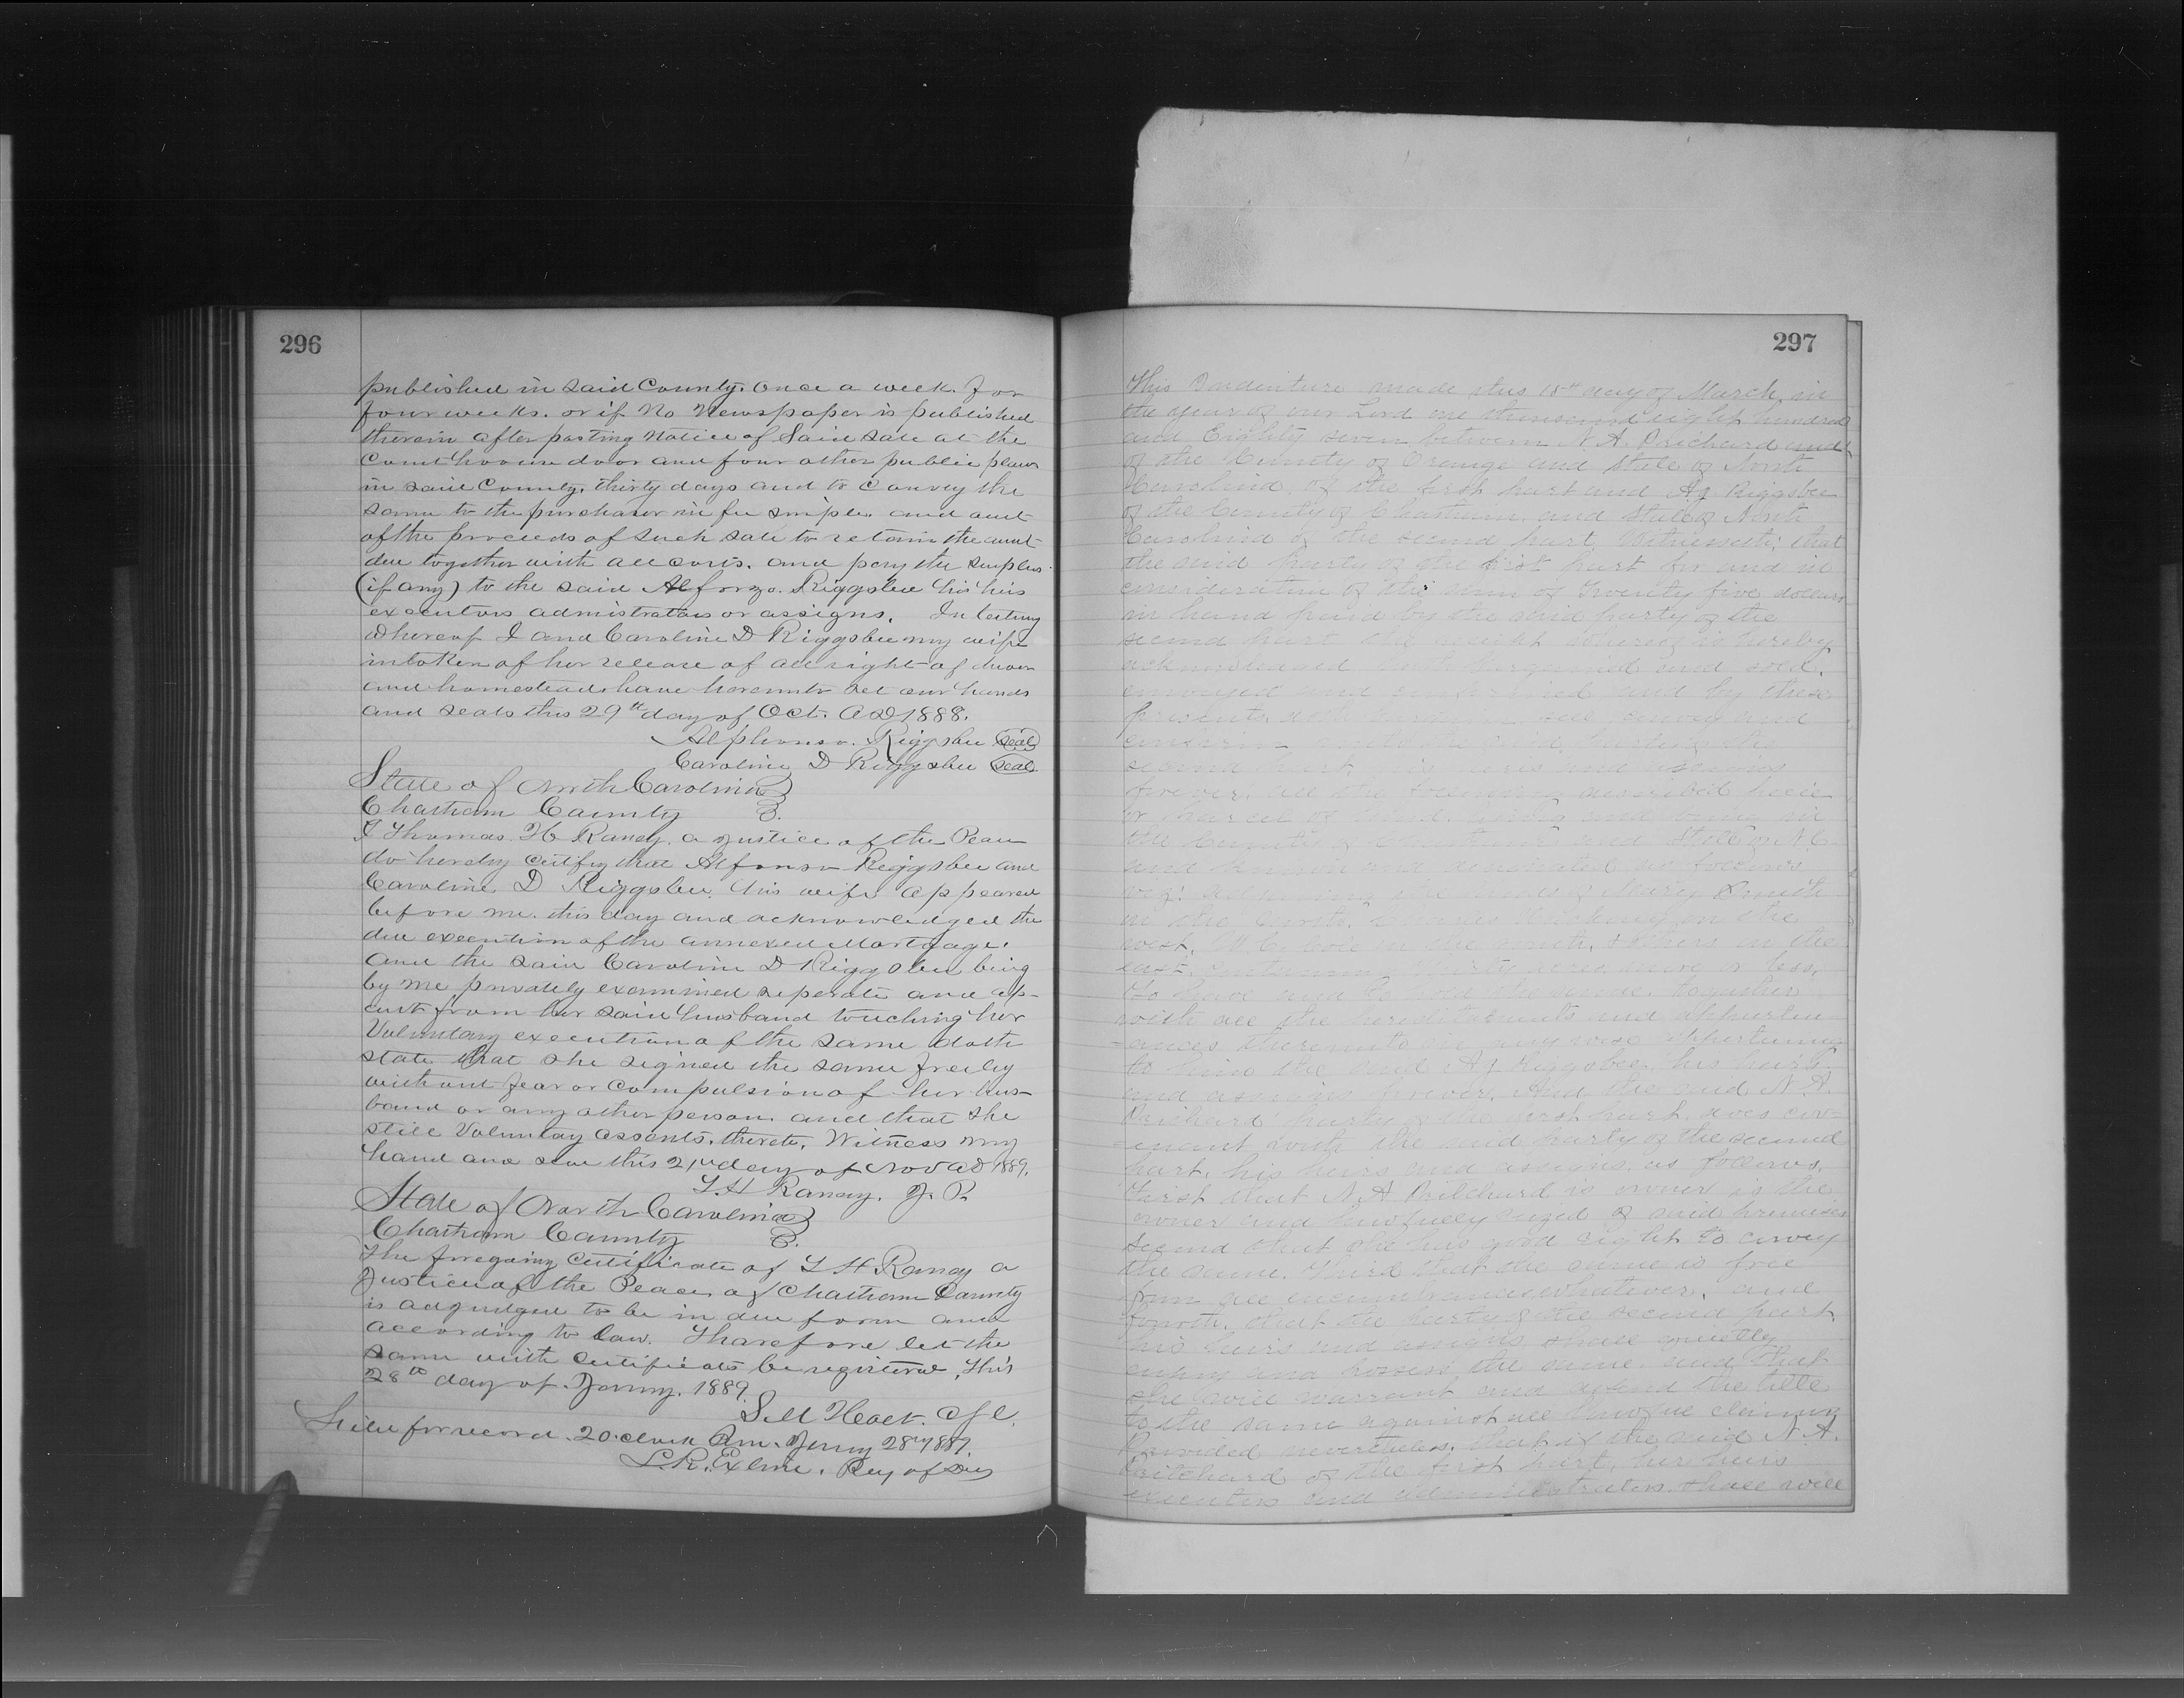 296
published in said County. Once a week. for
four weeks. or if No Newspaper is published
therein after posting Notice of Said Sale at the
Court house door and four other public places
in said County. thirty days and to Convey the
same to the purchaser in fee simple. and out
of the proceeds of such sale to retain the amt
due together with all costs. and pay the surplus
(if any) to the said Alfonzo. Riggsbee his heirs
executors admistrators or assigns. In testimy
Whereof I and Caroline D Riggsbee my wife
in token of her release of all right of dower
and homestead have hereunto set our hands
and seals this 29th day of Oct. AD 1888.
Alphonso. Riggsbee Seal
Caroline D Riggsbee Seal
State of North Carolina
Chatham County
I Thomas H Raney, a Justice of the Peace
do hereby certify that Alfonso Riggsbee and
Caroline D Riggsbee. his wife appeared
before me. this day and acknowledged the
due execution of the annexed Mortgage.
and the said Caroline D Riggsbee being
by me privately examined seperate and ap-
art from her said husband touching her
Voluntary execution of the same doth
state that she signed the same freely
without fear or compulsion of her hus-
band or any other person. and that she
still Voluntay assents. thereto. Witness my
hand and seal this 21st day of Nov AD 1889.
T. H Raney. J. P.
State of North Carolina
Chatham County
The foregoing Certificate of T H Raney a
Justice of the Peace of Chatham County
is adjudged to be in due form and
according to law. Therefore let the
same with Certificate be registered. This
28th day of Jany. 1889.
Filed for record. 2 O.clock Pm. Jany 28th 1889.
L. R. Exline. Reg of Dds
297
This Indenture made this 18th day of March in
the year of our Lord one thousand eight hundred
and Eighty seven between N. A. Prichard and
of the County of Orange and State of North
Carolina, of the first part and A J Riggsbee
of the County of Chatham and State of North
Carolina of the second part Witnesseth; that
the said party of the first part for and in
consideration of the sum of Twenty five dollars
in hand paid by the said party of the
second part the receipt whereof is hereby
acknowledged bargained and sold.
and by these
presents convey and
second part heirs and assigns
forever. all described
the County of State of N.C
and follows
viz: Mary
on the
west. on the south, others on the
east. containing acres more or less.
To have and to hold the same. together
with all the hereditaments and appurten
ances thereunto in any wise appertaining
to him the said A J Riggsbee his heirs
and assigns forever. And the said N. A.
Prichard party of the first part does cov-
enant with the said party of the second
part, his heirs and assigns. as follows.
First that N. A Pritchard is owner is the
owner and lawfully seized of said premises
Second that she has good right to convey
the same. Third that the same is free
from all encumbrances whatever, and
fourth. that the party of the second part
his heirs and assigns shall quietly
enjoy and possess the same and that
she will warrant and defend the title
to the same against all lawful claims
Provided nevertheless, that if the said N. A.
Pritchard of the first part, her heirs
executors and administrators shall well